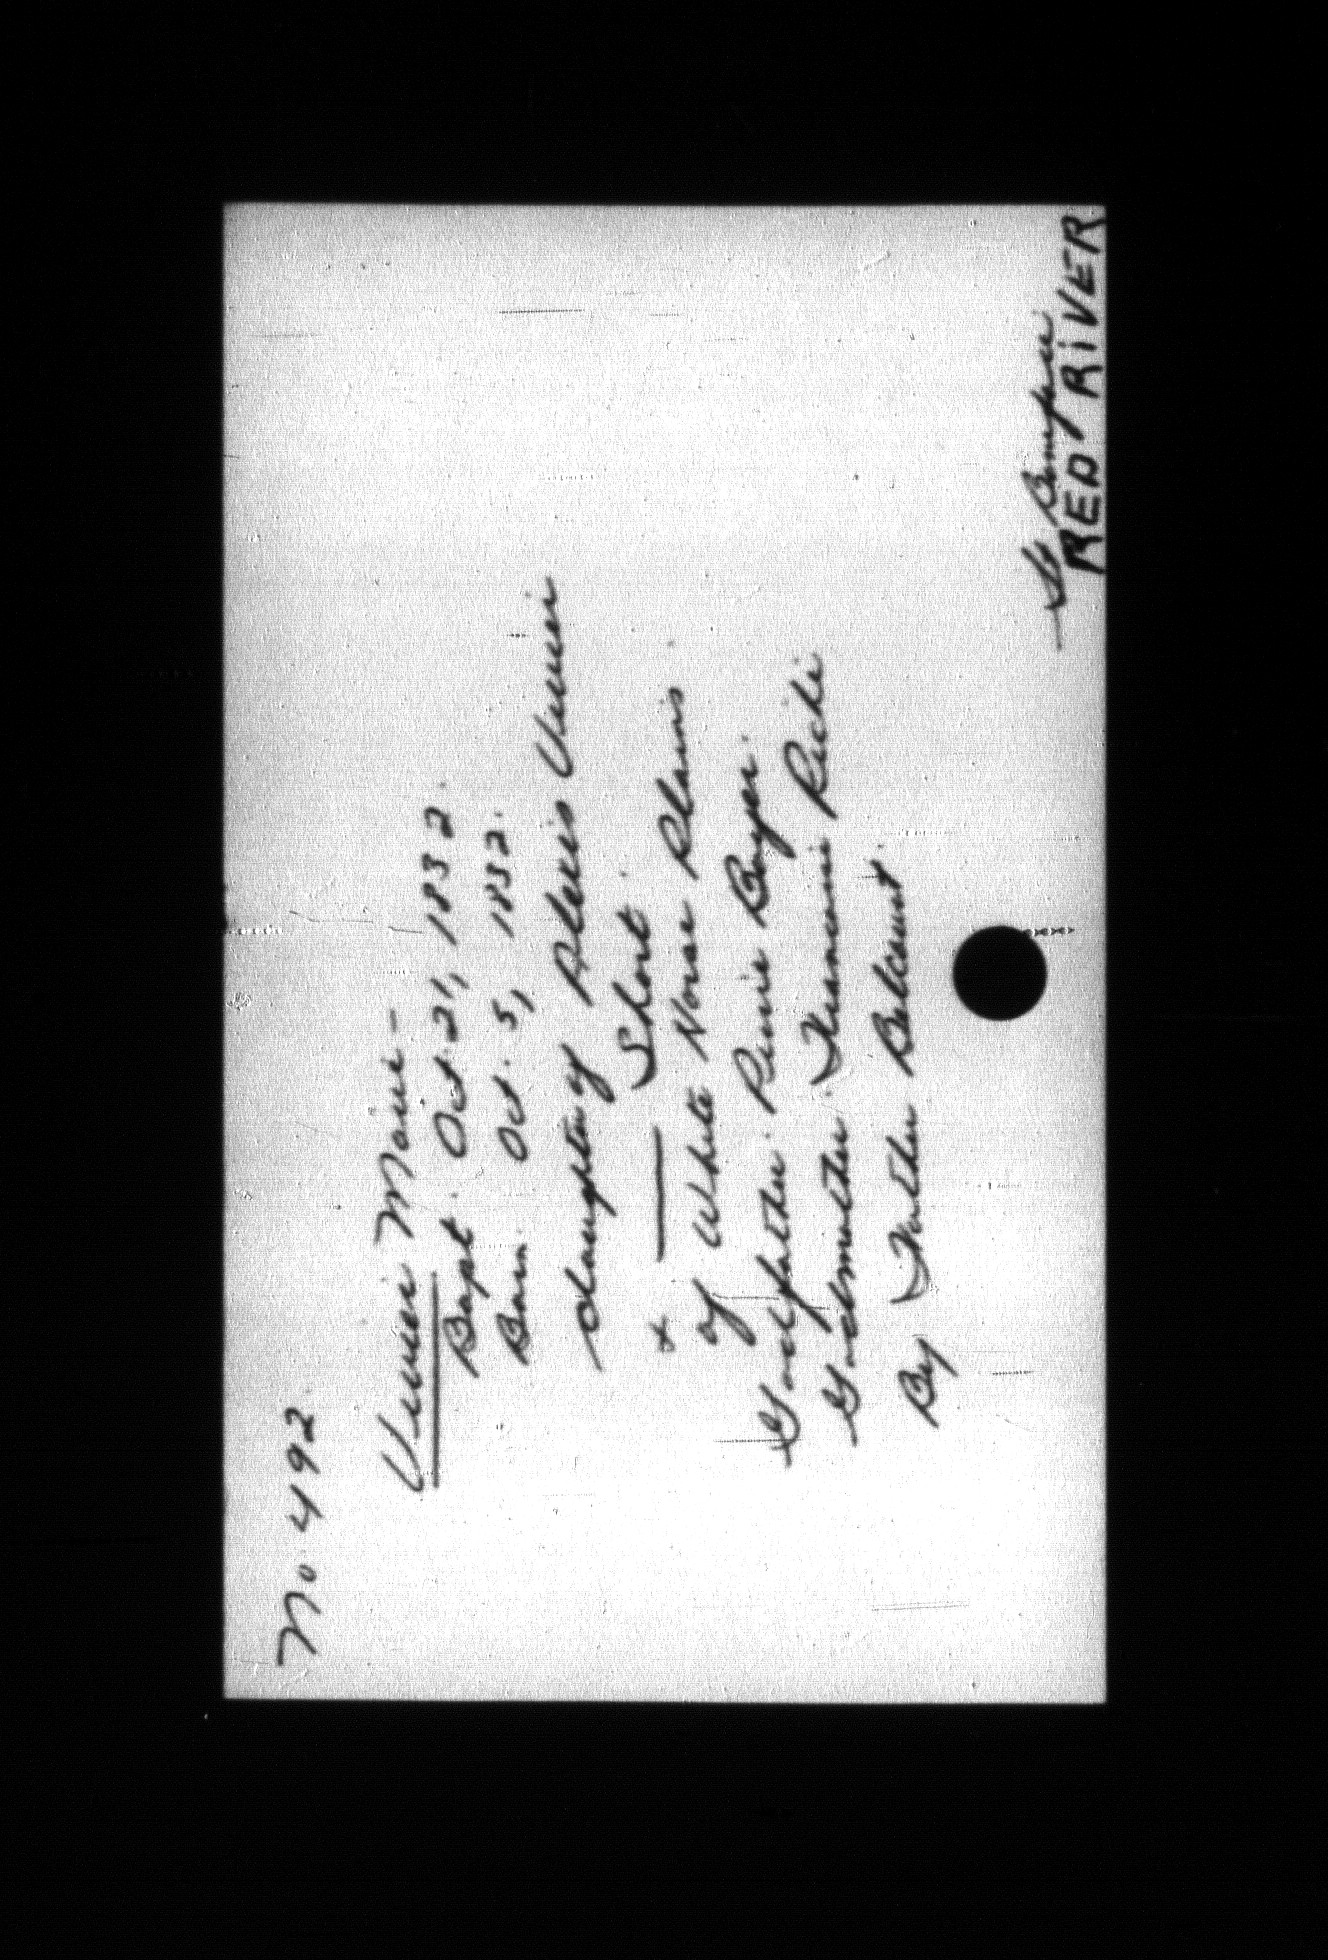 No. 492
Venne Marie -
Bapt. Oct. 21, 1832.
Born. Oct. 5, 1832.
daughter of Alexis Venne
& — Short.
of White Horse Plains
Godfather. Pierre Boyer.
Godmother. Francoise Riche
By Father Belcourt.
St Boniface
RED RIVER